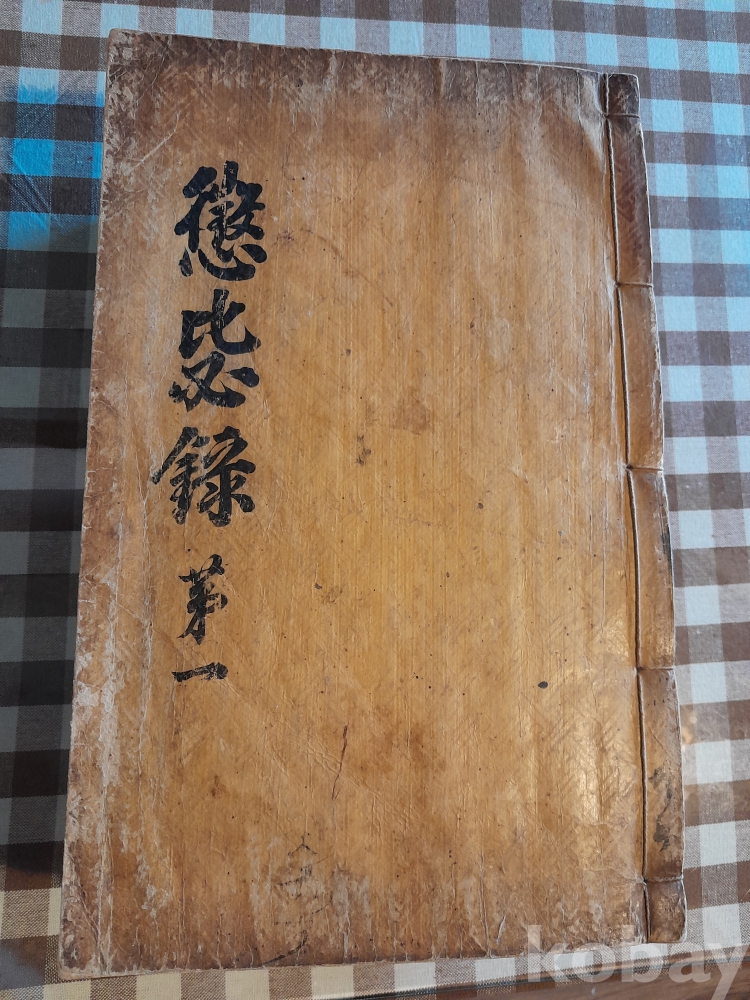 懲毖錄 苐一
kobay